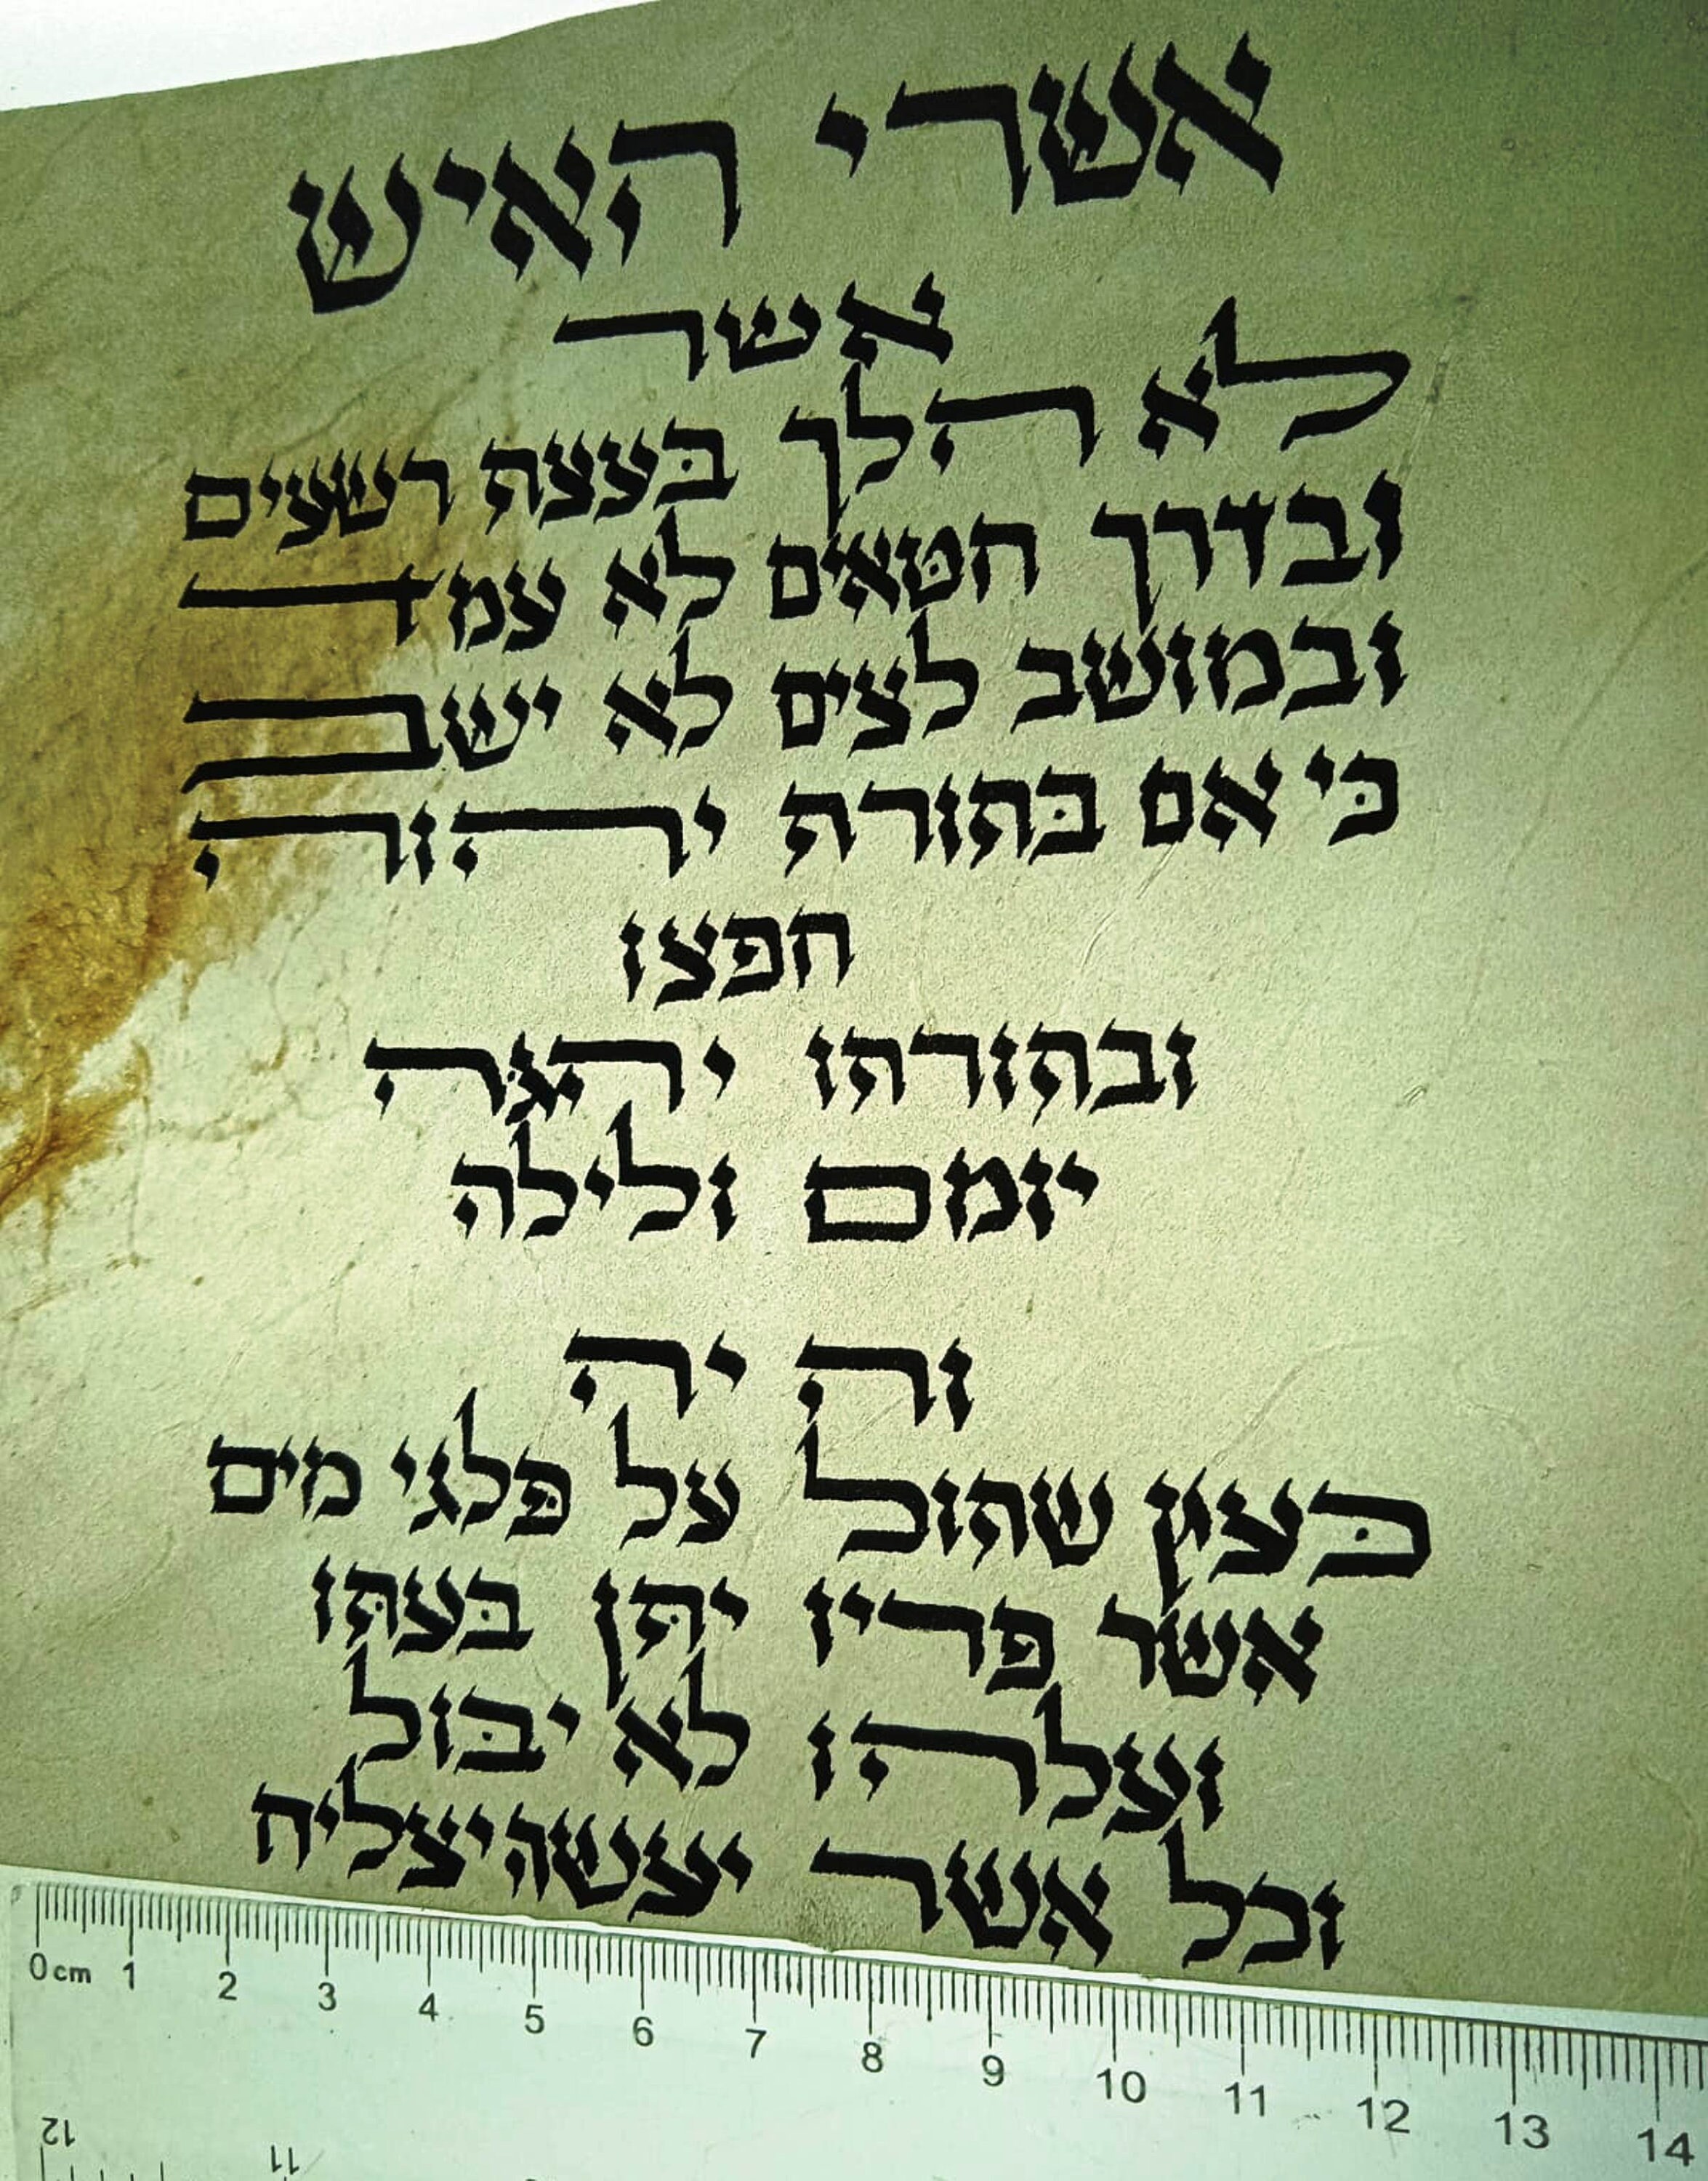 אשרי האיש
אשר
לא הלך בּעצת רשעים
ובדרך חטּאים לא עמד
ובמושב לצים לא ישב
כּי אם בּתורת יהוה
חפצו
ובתורתו יהגּה
יומם ולילה
וה יה
כּעץ שתול על פּלגי מים
אשר פּריו יתּן בּעתּו
ועלהו לא יבּול
וכל אשר יעשה יצליח
0cm 1 2 3 4 5 6 7 8 9 10 11 12 13 14
12 11